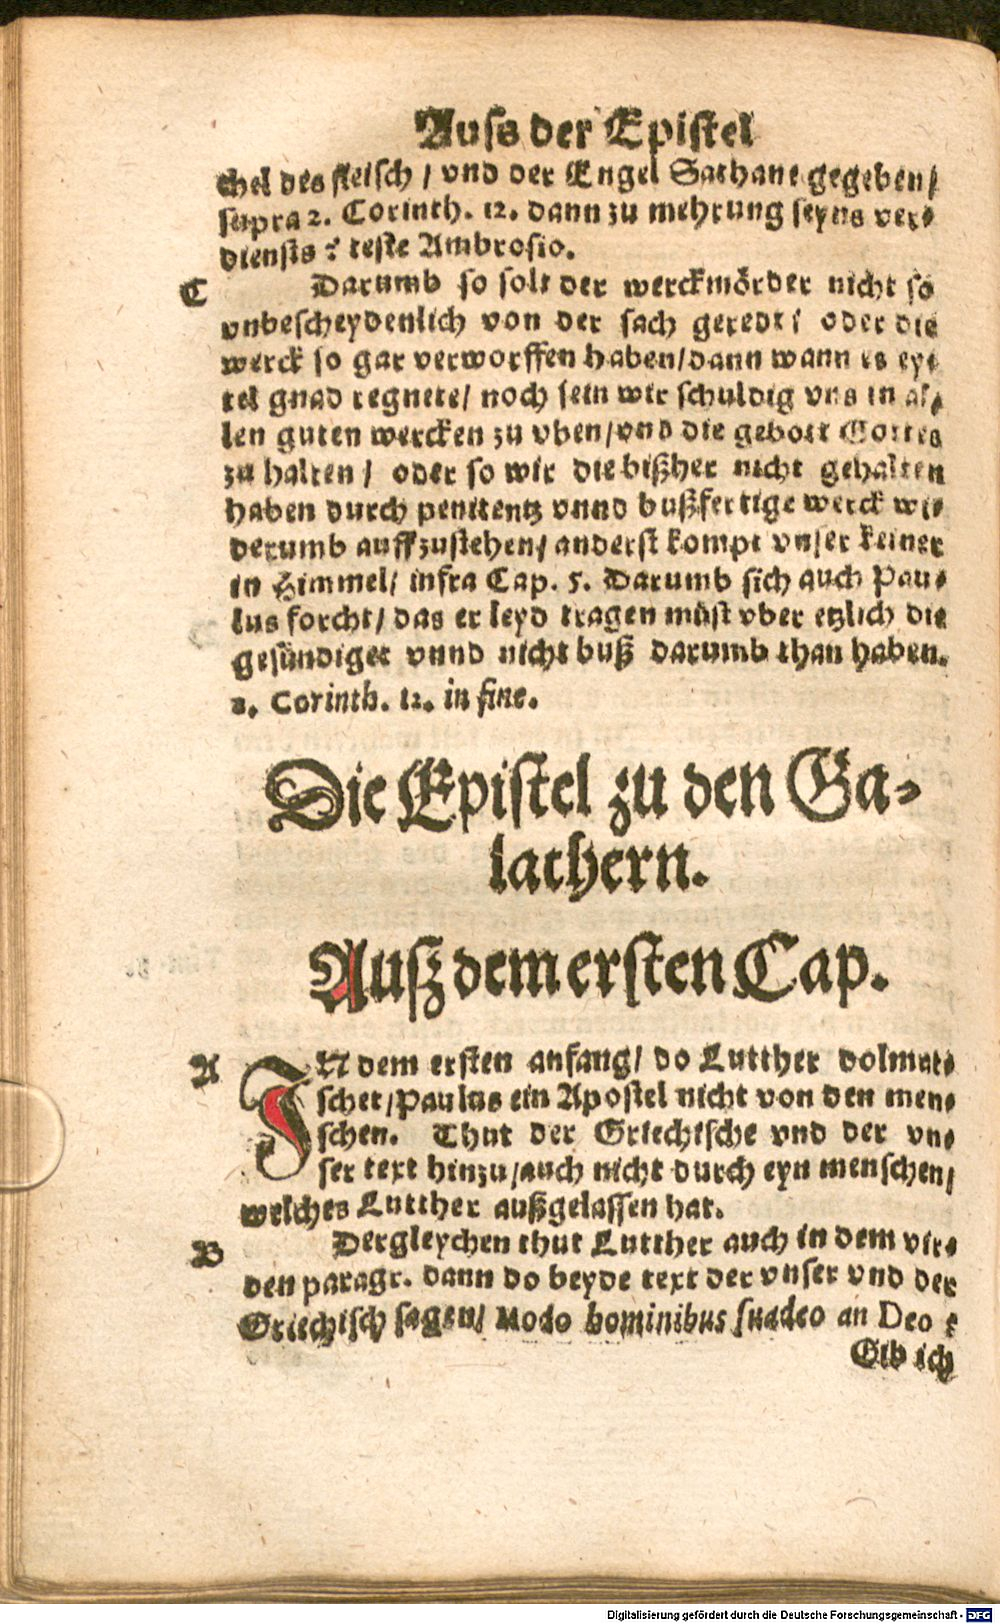 Auss der Epistel
chel des fleisch / vnd der Engel Sathane gegeben /
supra 2. Corinth. 12. dann zu mehrung seyns ver⸗
diensts ? teste Ambrosio.
C Darumb so solt der werckmörder nicht so
vnbescheydenlich von der sach geredt / oder die
werck so gar verworffen haben / dann wann es ey⸗
tel gnad regnete / noch sein wir schuldig vns in al⸗
len guten wercken zu vben / vnd die gebott Gottes
zu halten / oder so wir die bißher nicht gehalten
haben durch penitentz vnnd bußfertige werck wi⸗
derumb auffzustehen / anderst kompt vnser keiner
in Himmel / infra Cap. 5. Darumb sich auch Pau⸗
lus forcht / das er leyd tragen müst vber etzlich die
gesündiget vnnd nicht buß darumb than haben.
2. Corinth. 12. in fine.
Die Epistel zu den Ga⸗
lathern.
Auß dem ersten Cap.
A IN dem ersten anfang / do Lutther dolmet⸗
schet / Paulus ein Apostel nicht von den men⸗
schen. Thut der Griechische vnd der vn⸗
ser text hinzu / auch nicht durch eyn menschen /
welches Lutther außgelassen hat.
B Dergleychen thut Lutther auch in dem vir⸗
den paragr. dann do beyde text der vnser vnd der
Griechisch sagen / Modo hominibus suadeo an Deo ?
Gib ich
Digitalisierung gefördert durch die Deutsche Forschungsgemeinschaft - DFG